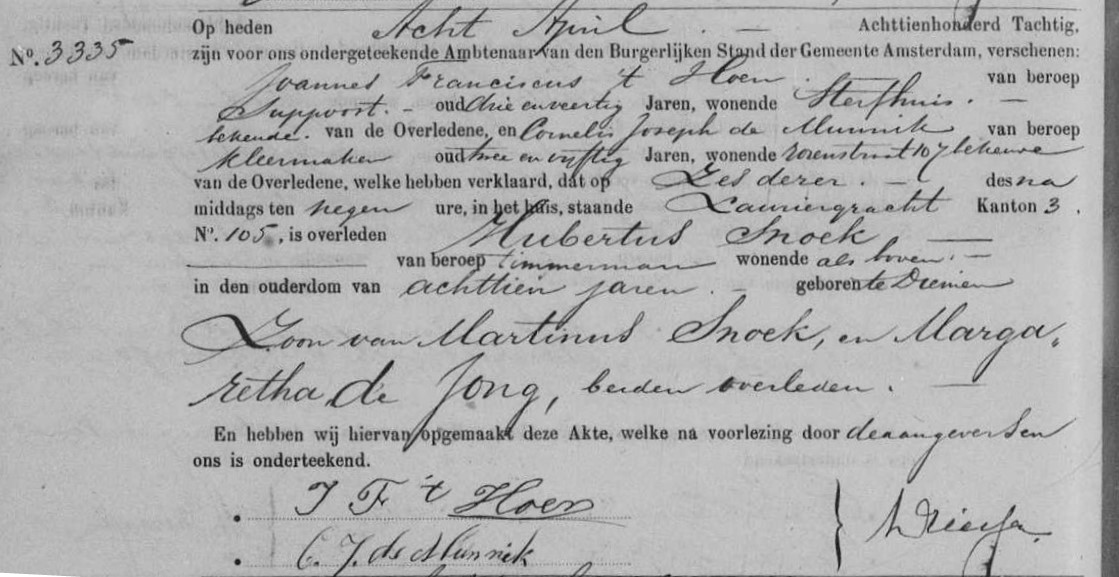 Op heden Acht April. Achttienhonderd Tachtig,
No. 3335 zijn voor ons ondergeteekende Ambtenaar van den Burgerlijken Stand der Gemeente Amsterdam, verschenen:
Joannes Franciscus 't Hoen van beroep
Suppoost. oud drie en veertig Jaren, wonende Sterfhuis.
bekende. van de Overledene, en Cornelis Joseph de Munnik van beroep
kleermaker oud twee en vijftig Jaren, wonende Rozenstraat 107 bekende
van de Overledene, welke hebben verklaard, dat op Zes dezer. des na
middags ten negen ure, in het huis, staande Lauriergracht Kanton 3.
No. 105, is overleden Hubertus Snoek
van beroep timmerman wonende als boven.
in den ouderdom van achttien jaren. geboren te Diemen
Zoon van Martinus Snoek, en Marga,
retha de Jong, beiden overleden.
En hebben wij hiervan opgemaakt deze Akte, welke na voorlezing door de aangevers en
ons is onderteekend.
J F 't Hoen
C. J. de Munnik